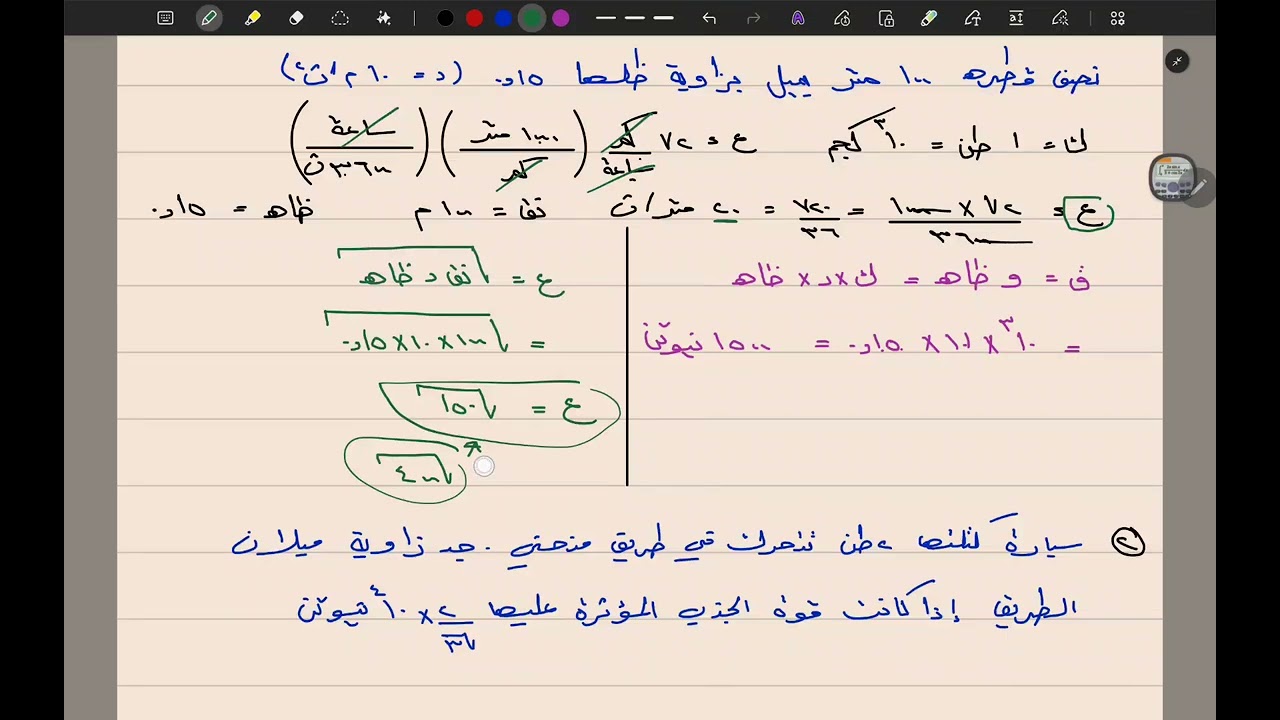 نصف قطره ١٠٠ متر يميل بزاوية ظلها ٠٫١٥ (د = ١٠ م/ث٢)
ك = ١ طن = ١٠^٣ كجم
ع = ٧٢ (كم/ساعة) (١٠٠٠ متر/كم) (ساعة/٣٦٠٠ ث)
ع = ٧٢ × ١٠٠٠/٣٦٠٠ = ٧٢٠/٣٦ = ٢٠ متر/ث
نق = ١٠٠ م
ظاهـ = ٠٫١٥
ق = و ظاهـ = ك × د × ظاهـ
= ١٠^٣ × ١٠ × ٠٫١٥ = ١٥٠٠ نيوتن
ع = √نق د ظاهـ
= √١٠٠ × ١٠ × ٠٫١٥
ع = √١٥٠
√٤٠٠
② سيارة كتلتها ٢ طن تتحرك في طريق منحني . جد زاوية ميلان
الطريق إذا كانت قوة الجذب المؤثرة عليها ٢/√٣ × ١٠^٤ نيوتن